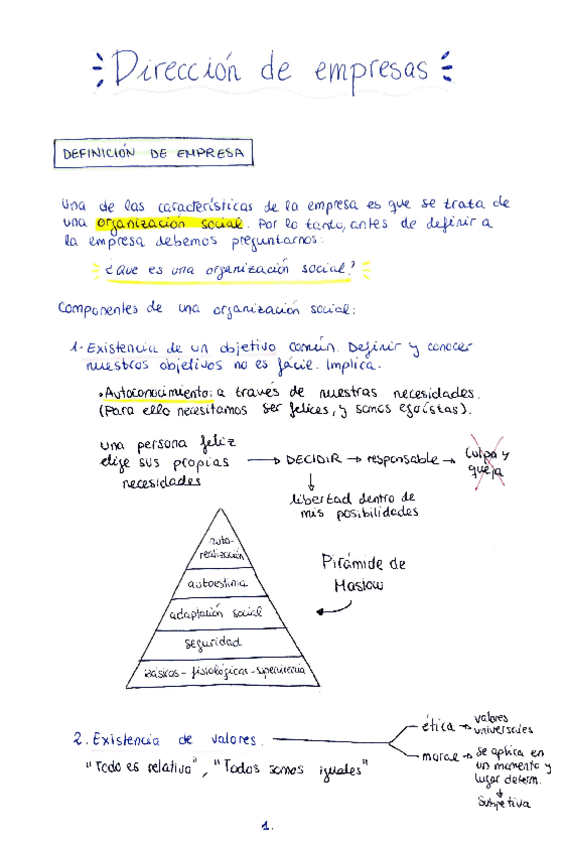 Dirección de empresas
DEFINICIÓN DE EMPRESA
Una de las características de la empresa es que se trata de
una organización social. Por lo tanto, antes de definir a
la empresa debemos preguntarnos:
¿Que es una organización social?
Componentes de una organización social:
1- Existencia de un objetivo común. Definir y conocer
nuestros objetivos no es fácil. Implica.
• Autoconocimiento: a través de nuestras necesidades.
(Para ello necesitamos ser felices, y somos egoístas).
una persona feliz
elige sus propias
necesidades
→ DECIDIR → responsable →
culpa y
queja
↓
libertad dentro de
mis posibilidades
auto-
realización
autoestima
adaptación social
seguridad
básicos - fisiológicas - supervivencia
Pirámide de
Maslow
2. Existencia de valores.
ética → valores
universales
moral → se aplica en
un momento y
lugar determ.
↓
Subjetiva
"Todo es relativo", "Todos somos iguales"
1.